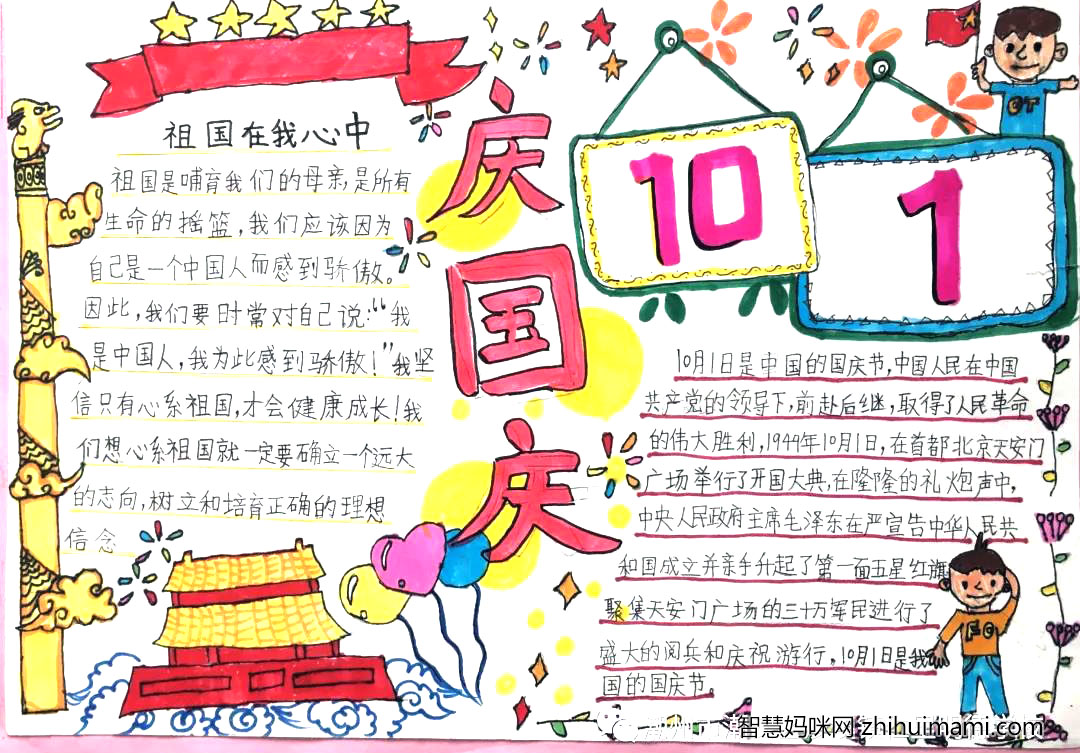 祖国在我心中
祖国是哺育我们的母亲,是所有
生命的摇篮,我们应该因为
自己是一个中国人而感到骄傲。
因此,我们要时常对自己说:“我
是中国人,我为此感到骄傲!”我坚
信只有心系祖国,才会健康成长!我
们想心系祖国就一定要确立一个远大
的志向,树立和培育正确的理想
信念
庆
国
庆
10
1
10月1日是中国的国庆节,中国人民在中国
共产党的领导下,前赴后继,取得了人民革命
的伟大胜利,1944年10月1日,在首都北京天安门
广场举行了开国大典,在隆隆的礼炮声中,
中央人民政府主席毛泽东在严宣告中华人民共
和国成立并亲手升起了第一面五星红旗
聚集天安门广场的三十万军民进行了
盛大的阅兵和庆祝游行。10月1日是我
国的国庆节。
智慧妈咪网 zhihuimami.com